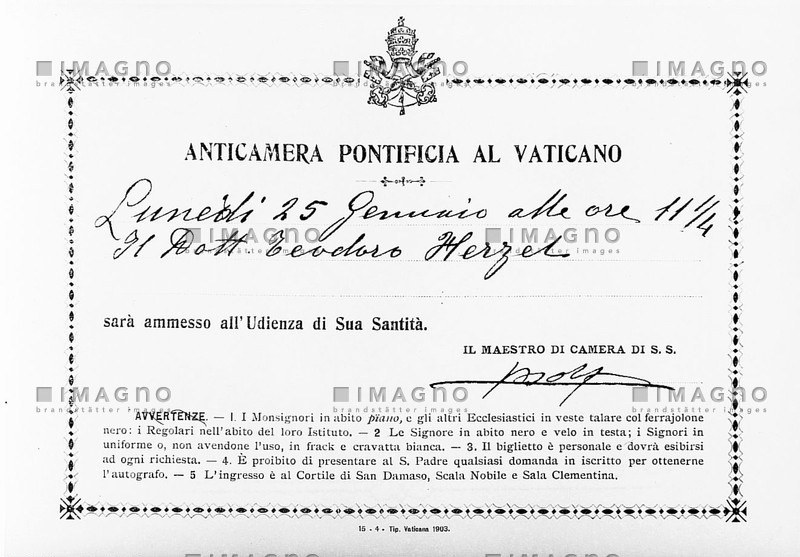 ANTICAMERA PONTIFICIA AL VATICANO
Lunedi 25 Gennaio alle ore 11 1/4
Il Dott. Teodoro Herzel
sarà ammesso all'Udienza di Sua Santità.
IL MAESTRO DI CAMERA DI S. S.
AVVERTENZE. — 1. I Monsignori in abito piano, e gli altri Ecclesiastici in veste talare col ferrajolone
nero: i Regolari nell'abito del loro Istituto. — 2 Le Signore in abito nero e velo in testa; i Signori in
uniforme o, non avendone l'uso, in frack e cravatta bianca. — 3. Il biglietto è personale e dovrà esibirsi
ad ogni richiesta. — 4. È proibito di presentare al S. Padre qualsiasi domanda in iscritto per ottenerne
l'autografo. — 5 L'ingresso è al Cortile di San Damaso, Scala Nobile e Sala Clementina.
15 - 4 - Tip. Vaticana 1903.
IMAGNO
brandstätter images